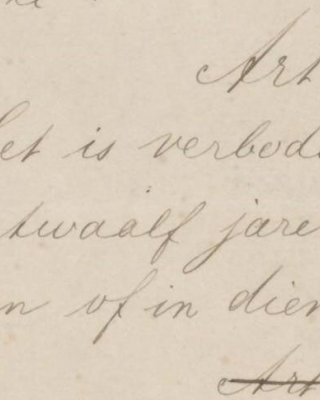 Art
et is verbod
twaalf jare
n of in dien
Art